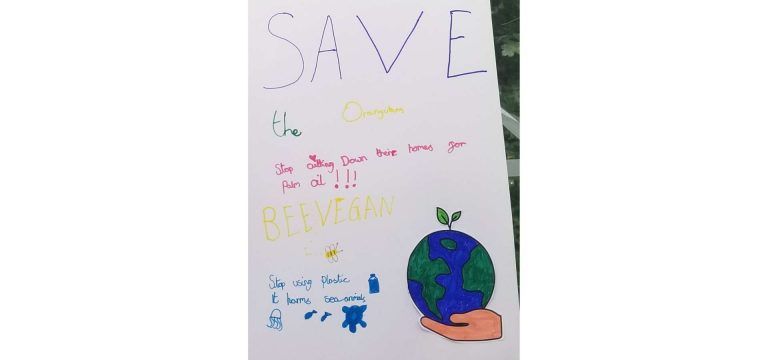 SAVE
the Orangutans
Stop cutting Down their homes for
Palm oil!!!
BEEVEGAN
Stop using plastic
It harms sea animals